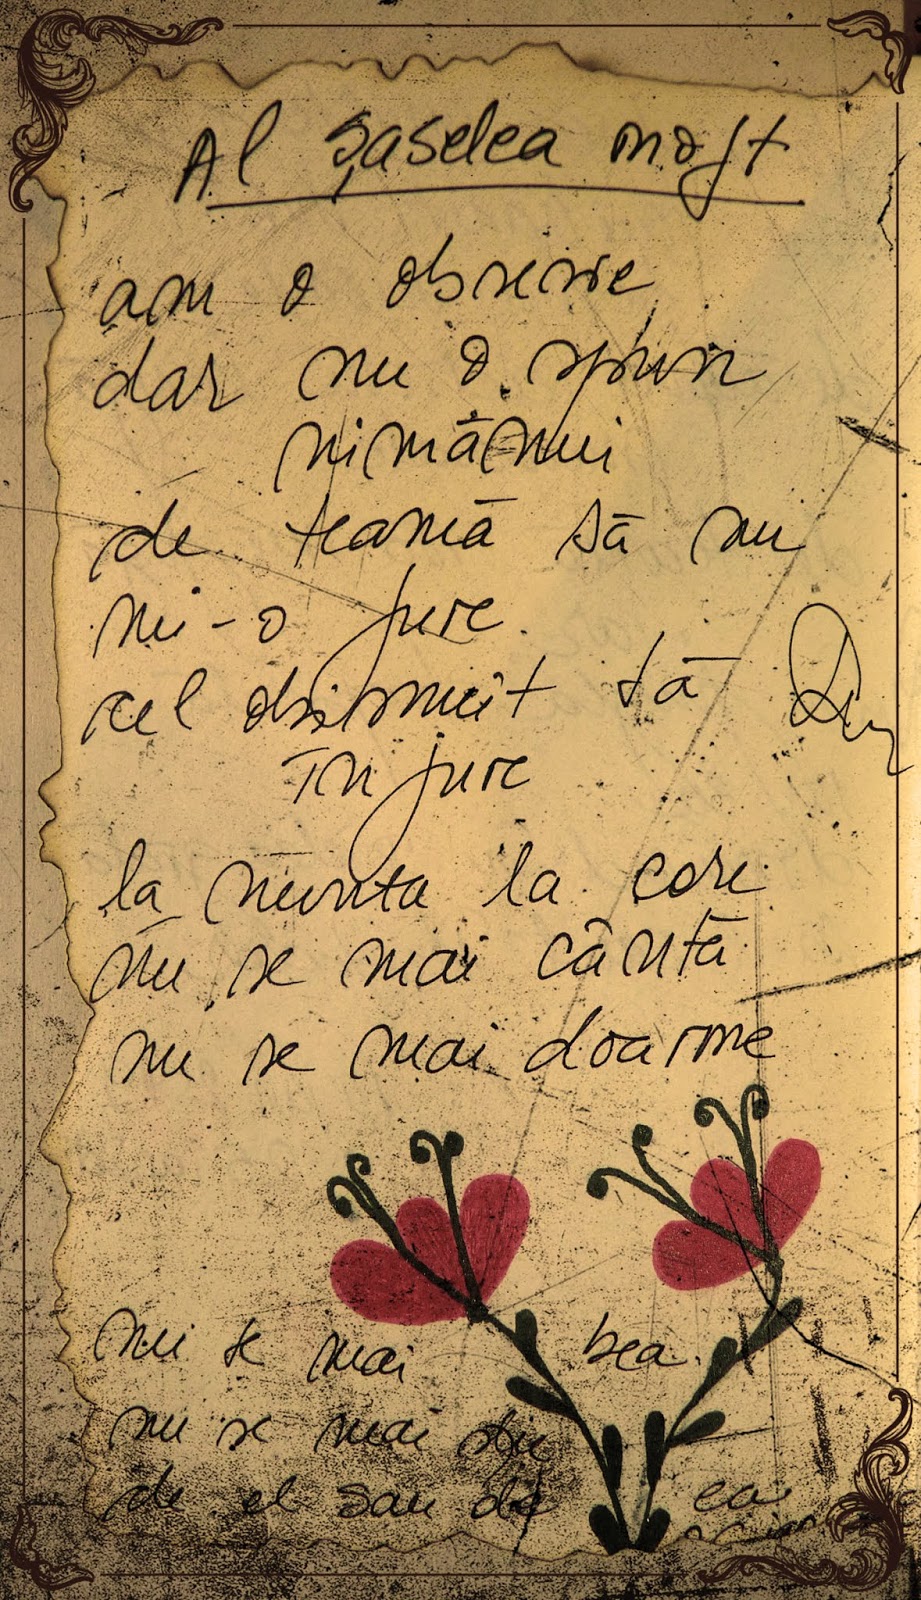 Al șaselea moft
am o obsesie
dar nu o spun
nimănui
de teamă să nu
mi-o fure
cel obișnuit să
înjure
la nunta la care
nu se mai cântă
nu se mai doarme
nu se mai bea
nu se mai știe
de el sau de ea